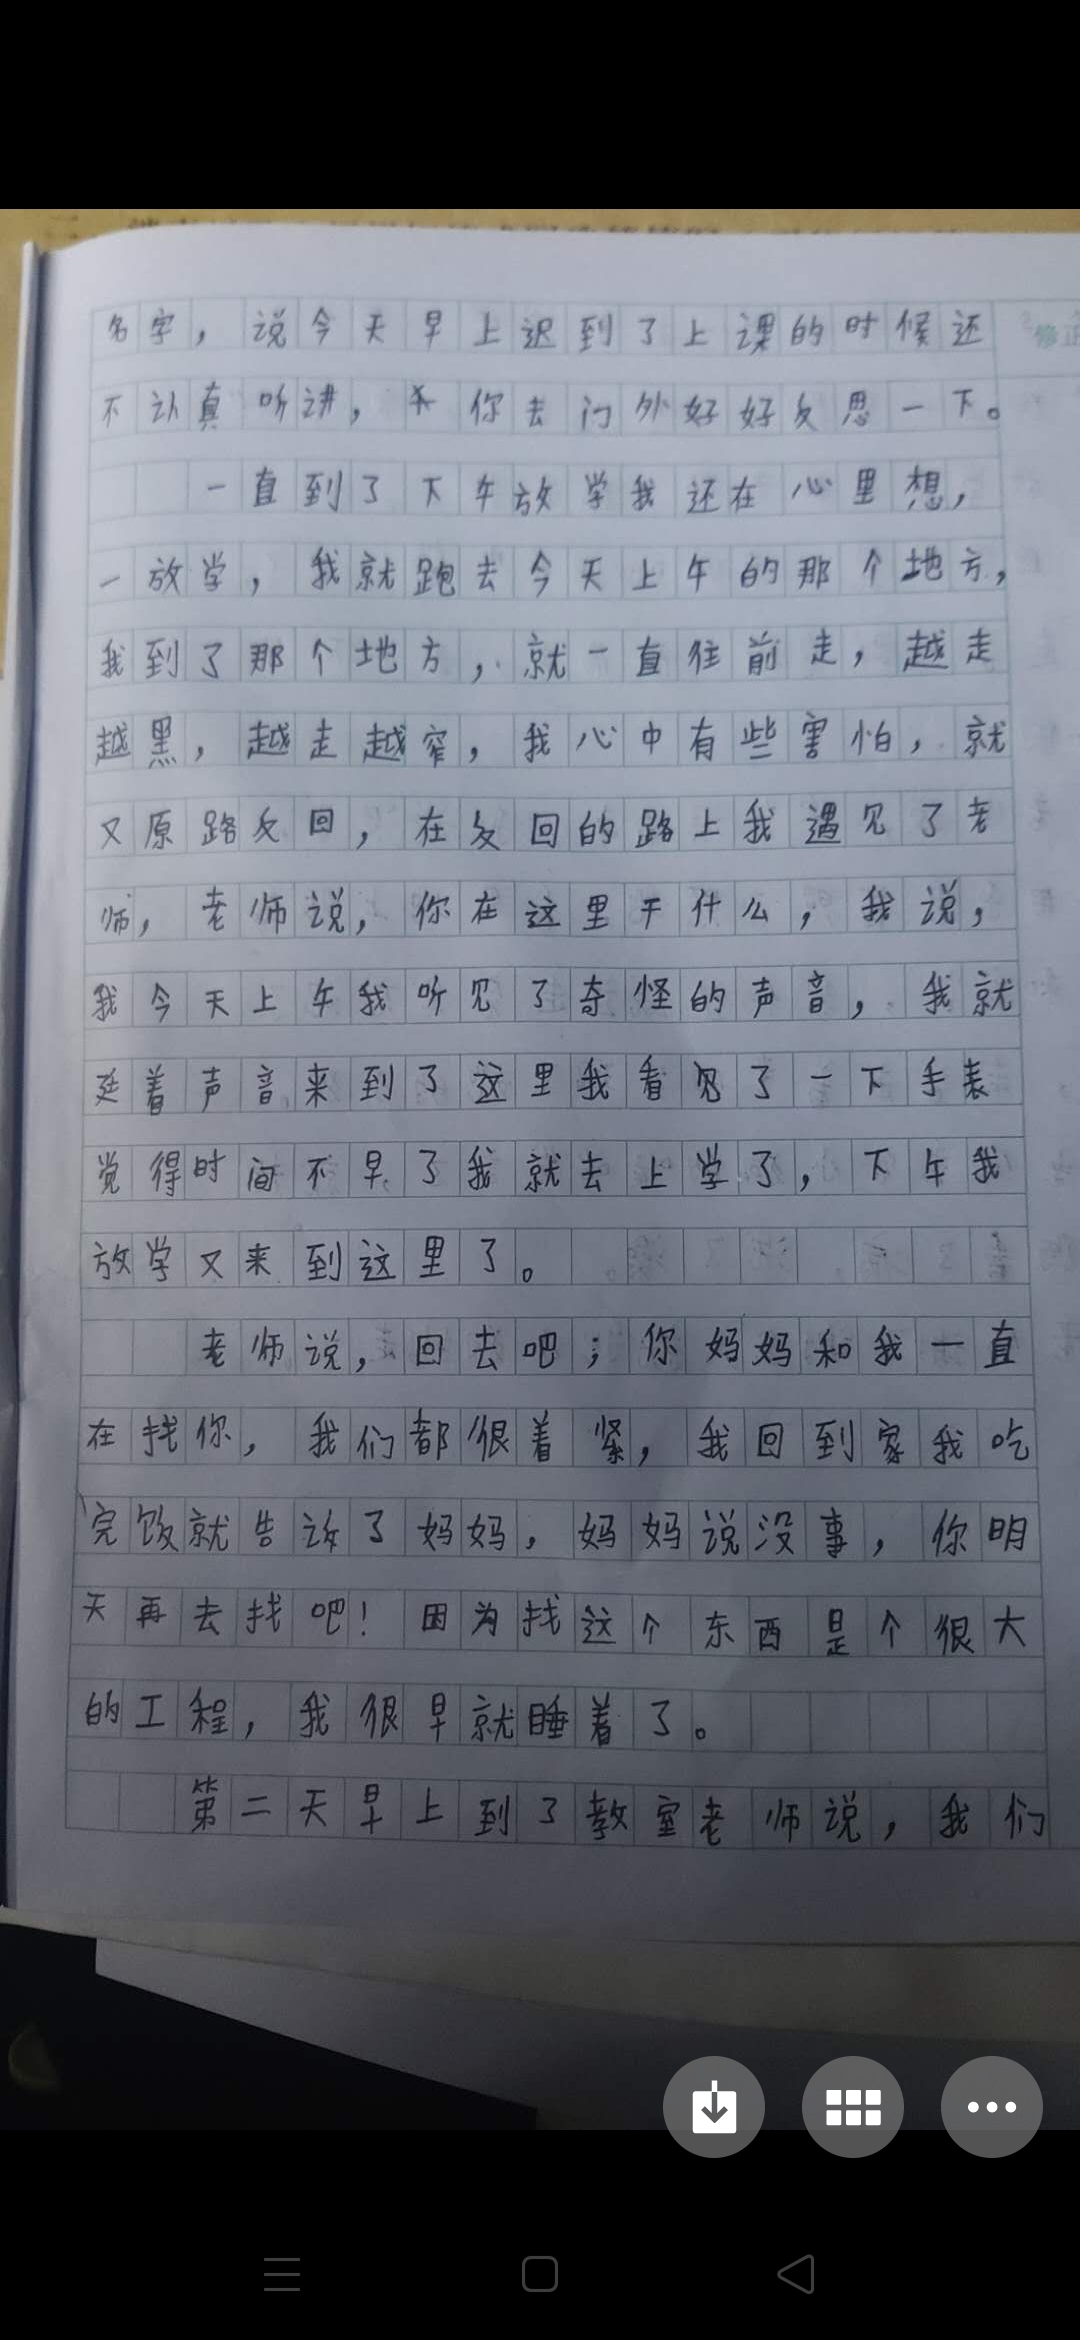 名字，说今天早上迟到了上课的时候还
不认真听讲，你去门外好好反思一下。
一直到了下午放学我还在心里想，
一放学，我就跑去今天上午的那个地方，
我到了那个地方，就一直往前走，越走
越黑，越走越窄，我心中有些害怕，就
又原路反回，在反回的路上我遇见了老
师，老师说，你在这里干什么，我说，
我今天上午我听见了奇怪的声音，我就
延着声音来到了这里我看见了一下手表
觉得时间不早了我就去上学了，下午我
放学又来到这里了。
老师说，回去吧；你妈妈和我一直
在找你，我们都很着紧，我回到家我吃
完饭就告诉了妈妈，妈妈说没事，你明
天再去找吧！因为找这个东西是个很大
的工程，我很早就睡着了。
第二天早上到了教室老师说，我们